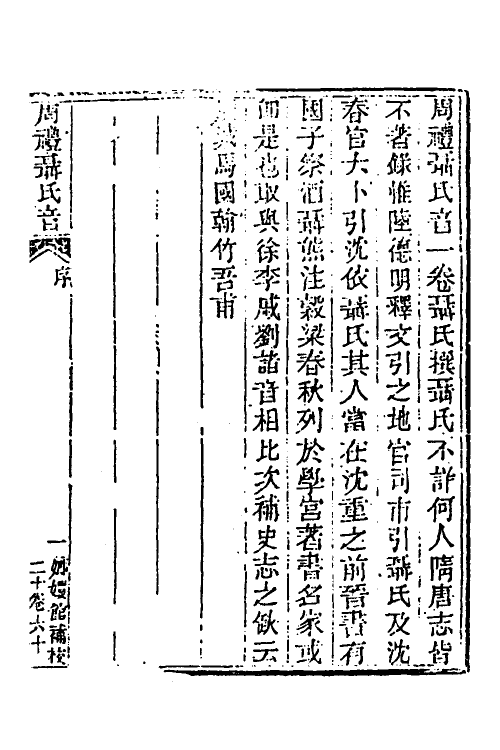 周禮聶氏音一卷聶氏撰聶氏不詳何人隋唐志皆
不著錄惟陸德明釋文引之地官司市引聶氏及沈
春官大卜引沈依聶氏其人當在沈重之前晉書有
國子祭酒聶熊注穀梁春秋列於學宫著書名家或
卽是也取與徐李戚劉諸音相比次補史志之缺云
馬國翰竹吾甫
周禮聶氏音
序
一
嫏嬛館補校
二十卷六十